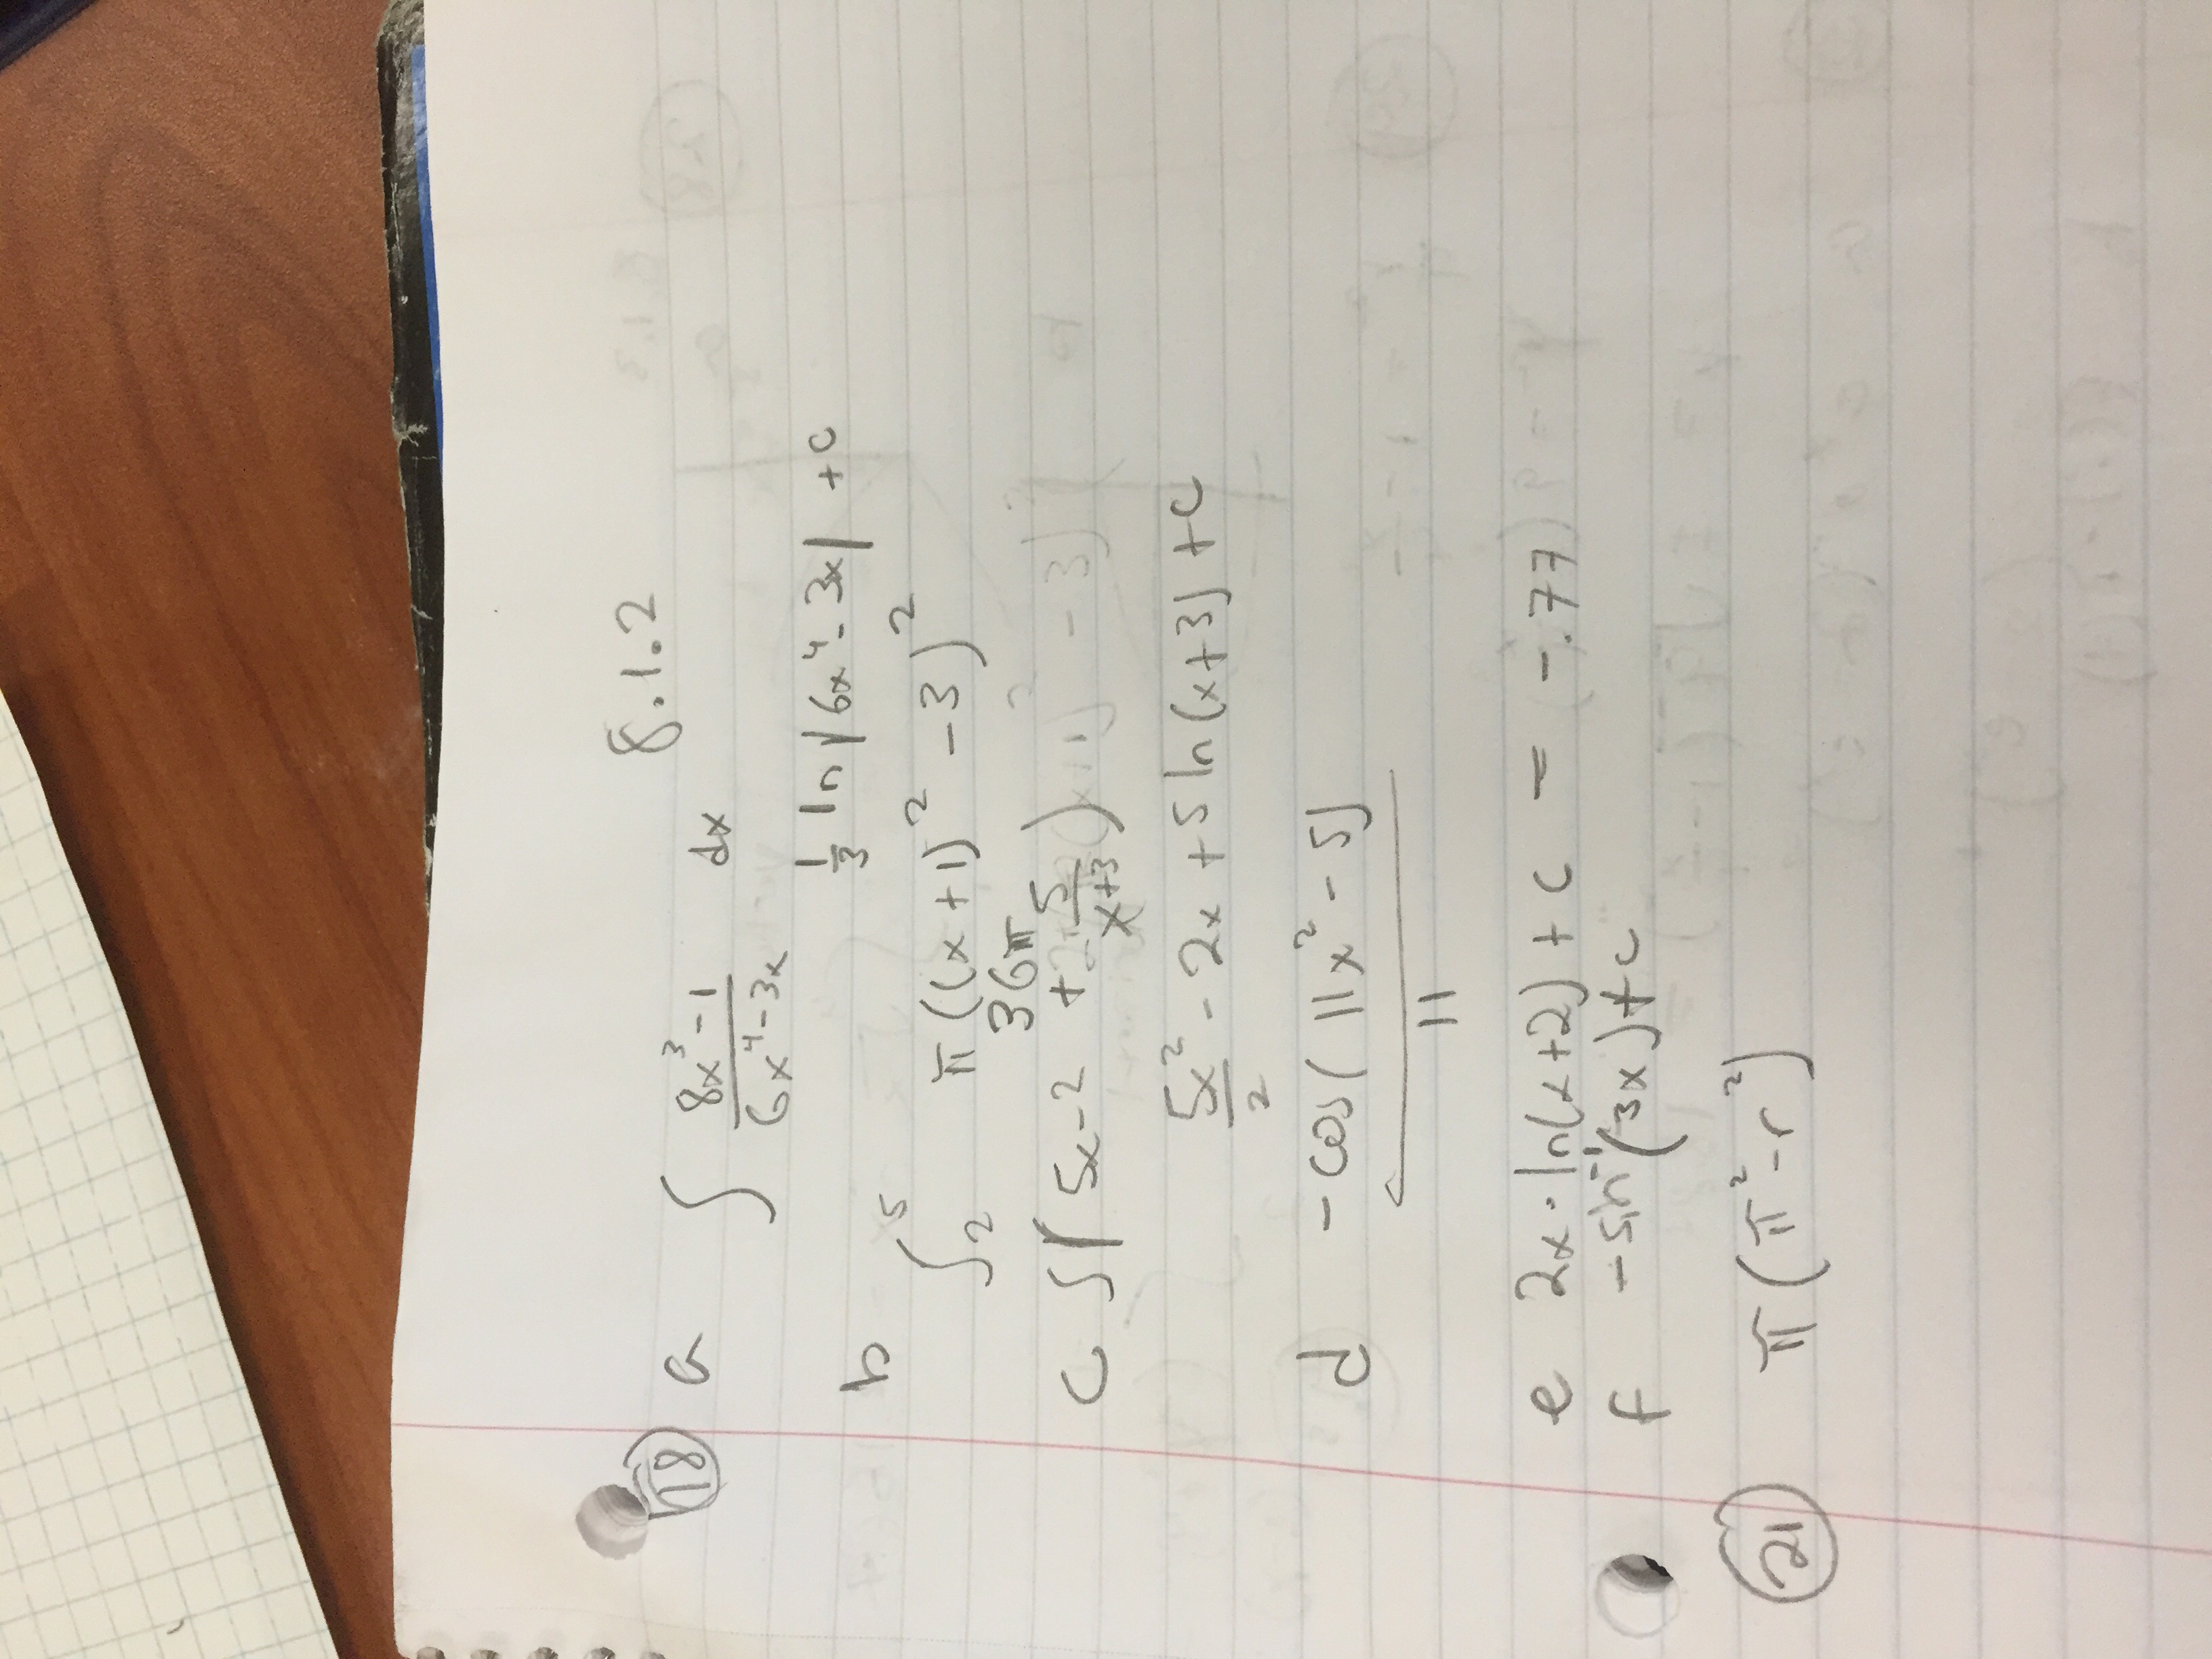 8.1.2
18 a ∫ 8x³-1 / 6x⁴-3x dx
1/3 ln|6x⁴-3x| +c
b ∫₂⁵ π((x+1)²-3)²
36π
c ∫(5x-2 + 5/x+3)
5x²/2 - 2x + 5 ln(x+3) + c
d -cos(11x²-5) / 11
e 2x·ln(x+2)+c = -.77
f -sin⁻¹(3x)+c
21 π(π²-r²)